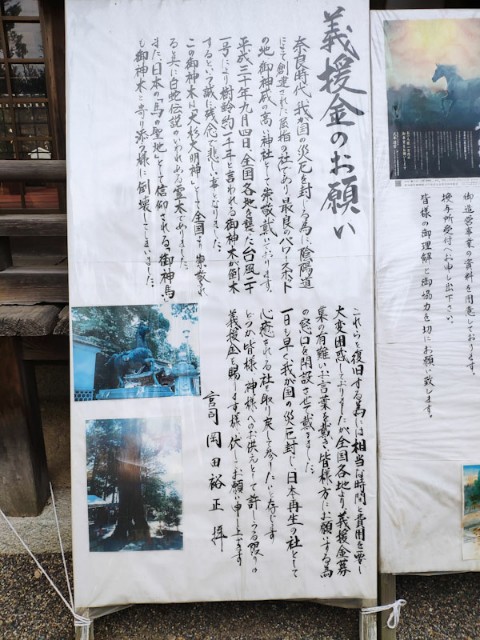 義援金のお願い
奈良時代、我国の災厄を封じる為に陰陽道
にて創造された最強の社であり、最良のパワースポット
の地、御神威の高い神社として崇敬を戴いております。
平成三十年九月四日、全国各地を襲った台風二十
一号により、樹齢約一千年と言われる御神木が倒木
するという誠に残念で悲しい事となりました。
この御神木は「大杉大明神」として全国より崇敬され
ると共に白蛇伝説のいわれのある霊木でありました。
また、日本の「馬の聖地」として信仰される「御神馬」
も御神木に寄り添う様に倒壊してしまいました。
これらを復旧する為には、相当な時間と費用を要し
大変困惑しておりましたが、全国各地より義援金募
集の有難いお言葉を戴き、皆様方にお願いする為
の窓口を開設させて戴きました。
一日も早く、我が国の災厄封じ、日本再生の社として
心癒される社を取り戻して参りたいと存じます。
どうか皆様、神様へのお供えとして許しうる限りの
義援金を賜ります様、伏してお願い申し上げます
宮司 岡田裕正 拝
御造営事業の資料を用意しております。
授与所受付へお申し出下さい。
皆様の御理解と御協力を切にお願い致します。